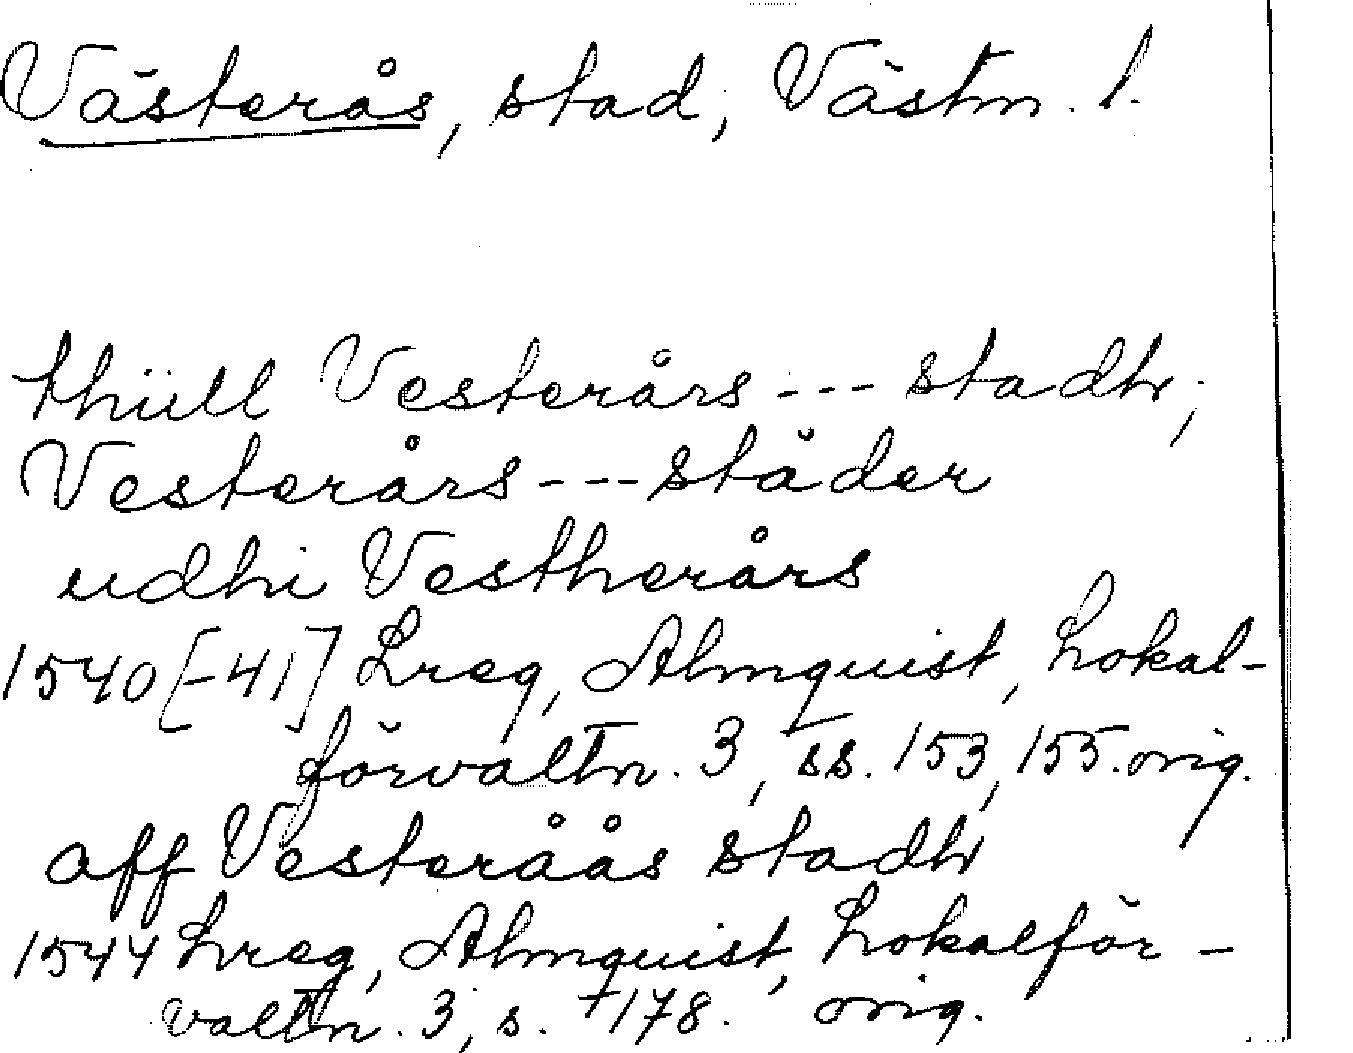 Västerås, stad, Västm. l.
thüll Vesterårs --- stadh,
Vesterårs --- städer
udhi Vestherårs
1540[-41] Lreg, Almquist, Lokal-
förvaltn. 3, ss. 153, 155. orig.
aff Vesteråås stadh
1544 Lreg, Almquist, Lokalför-
valtn. 3, s. 178. orig.